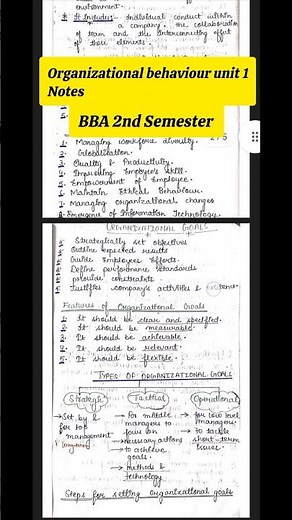 environment.
* It Includes:- Individual conduct within
a company, the collaboration
of team and the interconnecting effect
of these elements.
Organizational behaviour unit 1
Notes
BBA 2nd Semester
1. Managing workforce diversity.
2. Globalization.
3. Quality & Productivity.
4. Improving Employee skill.
5. Empowerment of Employee.
6. Maintain Ethical Behaviour.
7. Managing organizational changes
8. Emergence of Information Technology.
ORGANIZATIONAL GOALS
Strategically set objectives
Outline expected results
Guide Employees Efforts.
Define performance standards
provide constraints.
Justifies company's activities &
Features of Organizational Goals
1. It should be clear and specified.
2. It should be measurable.
3. It should be achievable.
4. It should be relevant.
5. It should be flexible.
TYPES OF ORGANIZATIONAL GOALS
Strategic Tactical Operational
→ Set by &
for top
management
→ For middle
managers to
focus on
necessary actions
→ to achieve
goals.
→ methods &
technology
→ for low level
managers.
→ To tackle
short-term
issues.
Steps for setting organizational goals